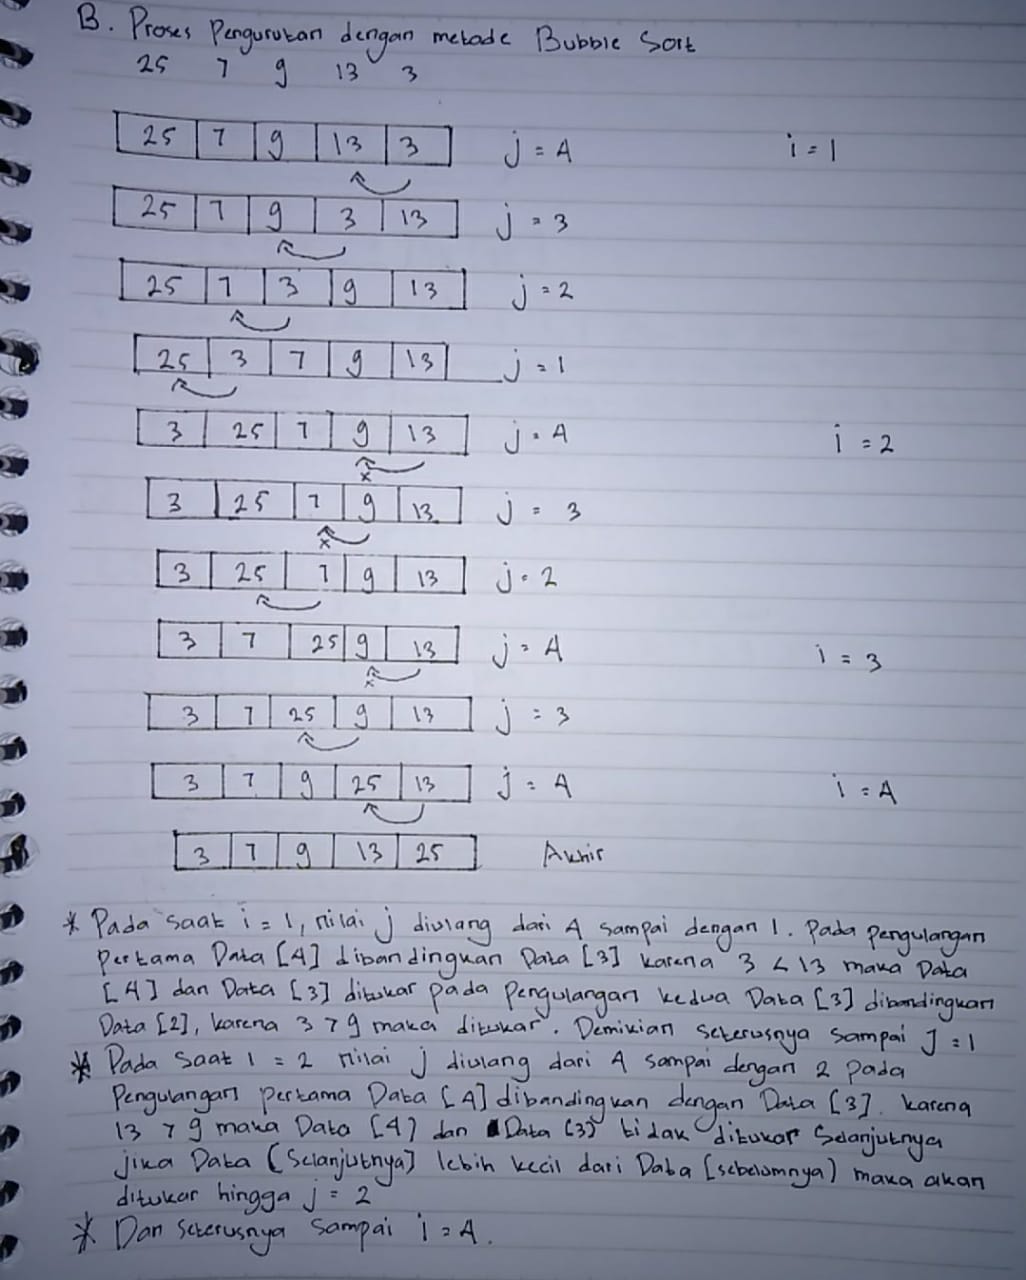 B. Proses Pengurutan dengan metode Bubble Sort
25 7 9 13 3
25 7 9 13 3 j = 4 i = 1
25 7 9 3 13 j = 3
25 7 3 9 13 j = 2
25 3 7 9 13 j = 1
3 25 7 9 13 j = 4 i = 2
x
3 25 7 9 13 j = 3
x
3 25 7 9 13 j = 2
3 7 25 9 13 j = 4 i = 3
x
3 7 25 9 13 j = 3
3 7 9 25 13 j = 4 i = 4
3 7 9 13 25 Akhir
* Pada saat i = 1, nilai j diulang dari 4 sampai dengan 1. Pada pengulangan
pertama Data [4] dibandingkan Data [3] karena 3 < 13 maka Data
[4] dan Data [3] ditukar pada pengulangan kedua Data [3] dibandingkan
Data [2], karena 3 > 9 maka ditukar. Demikian seterusnya sampai J = 1
* Pada saat i = 2 nilai j diulang dari 4 sampai dengan 2 pada
Pengulangan pertama Data [4] dibandingkan dengan Data [3]. karena
13 > 9 maka Data [4] dan Data [3] tidak ditukar Selanjutnya
jika Data (Selanjutnya] lebih kecil dari Data [sebelumnya) maka akan
ditukar hingga j = 2
* Dan seterusnya sampai i = 4.